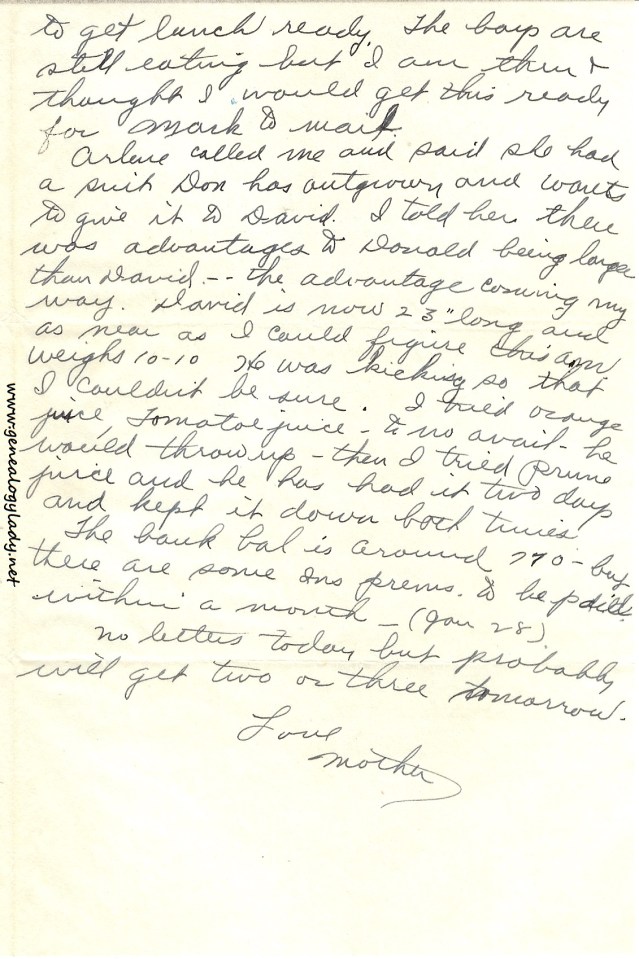 to get lunch ready. The boys are
still eating but I am thru &
thought I would get this ready
for Mark to mail.
Arlene called me and said she had
a suit Don has outgrown and wants
to give it to David. I told her there
was advantages to Donald being larger
than David -- the advantage coming my
way. David is now 23" long and
as near as I could figure this am
weighs 10-10 He was kicking so that
I couldn't be sure. I tried orange
juice, Tomatoe juice - to no avail - he
would throw up - then I tried prune
juice and he has had it two days
and kept it down both times
The bank bal is around 770 - but
there are some Ins prems. to be paid
within a month - (Jan 28)
No letters today but probably
will get two or three tomorrow.
Love
Mother
www.genealogylady.net